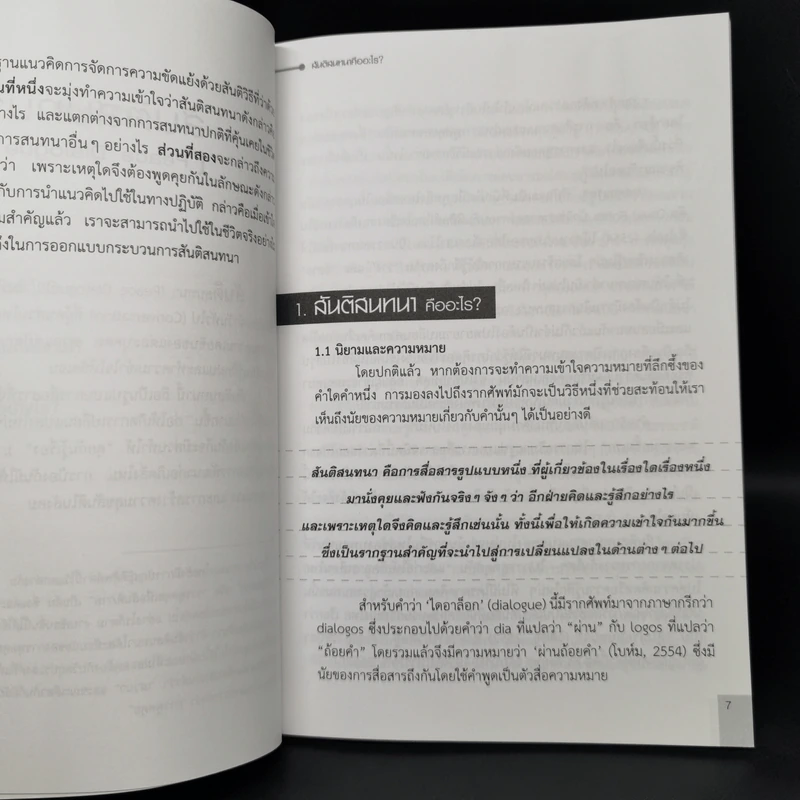 ฐานแนวคิดการจัดการความขัดแย้งด้วยสันติวิธีที่ว่าด้วย
นที่หนึ่งจะมุ่งทำความเข้าใจว่าสันติสนทนาดังกล่าว
างไร และแตกต่างจากการสนทนาปกติที่คุ้นเคยใน
การสนทนาอื่นๆ อย่างไร ส่วนที่สองจะกล่าวถึง
ว่า เพราะเหตุใดจึงต้องพูดคุยกันในลักษณะดังกล่าว
กับการนำแนวคิดไปใช้ในทางปฏิบัติ กล่าวคือ
มสำคัญแล้ว เราจะสามารถนำไปใช้ในชีวิตจริง
ถึงในการออกแบบกระบวนการสันติสนทนา
สันติสนทนาคืออะไร?
1. สันติสนทนา คืออะไร?
1.1 นิยามและความหมาย
โดยปกติแล้ว หากต้องการจะทำความเข้าใจความหมายที่ลึกซึ้งของ
คำใดคำหนึ่ง การมองลงไปถึงรากศัพท์มักจะเป็นวิธีหนึ่งที่ช่วยสะท้อนให้เรา
เห็นถึงนัยของความหมายเกี่ยวกับคำนั้นๆ ได้เป็นอย่างดี
สันติสนทนา คือการสื่อสารรูปแบบหนึ่ง ที่ผู้เกี่ยวข้องในเรื่องใดเรื่องหนึ่ง
มานั่งคุยและฟังกันจริงๆ จังๆ ว่า อีกฝ่ายคิดและรู้สึกอย่างไร
และเพราะเหตุใดจึงคิดและรู้สึกเช่นนั้น ทั้งนี้เพื่อให้เกิดความเข้าใจกันมากขึ้น
ซึ่งเป็นรากฐานสำคัญที่จะนำไปสู่การเปลี่ยนแปลงในด้านต่างๆ ต่อไป
สำหรับคำว่า 'ไดอาล็อก' (dialogue) นี้มีรากศัพท์มาจากภาษากรีกว่า
dialogos ซึ่งประกอบไปด้วยคำว่า dia ที่แปลว่า "ผ่าน" กับ logos ที่แปลว่า
"ถ้อยคำ" โดยรวมแล้วจึงมีความหมายว่า 'ผ่านถ้อยคำ' (โบห์ม, 2554) ซึ่งมี
นัยของการสื่อสารถึงกันโดยใช้คำพูดเป็นตัวสื่อความหมาย
7